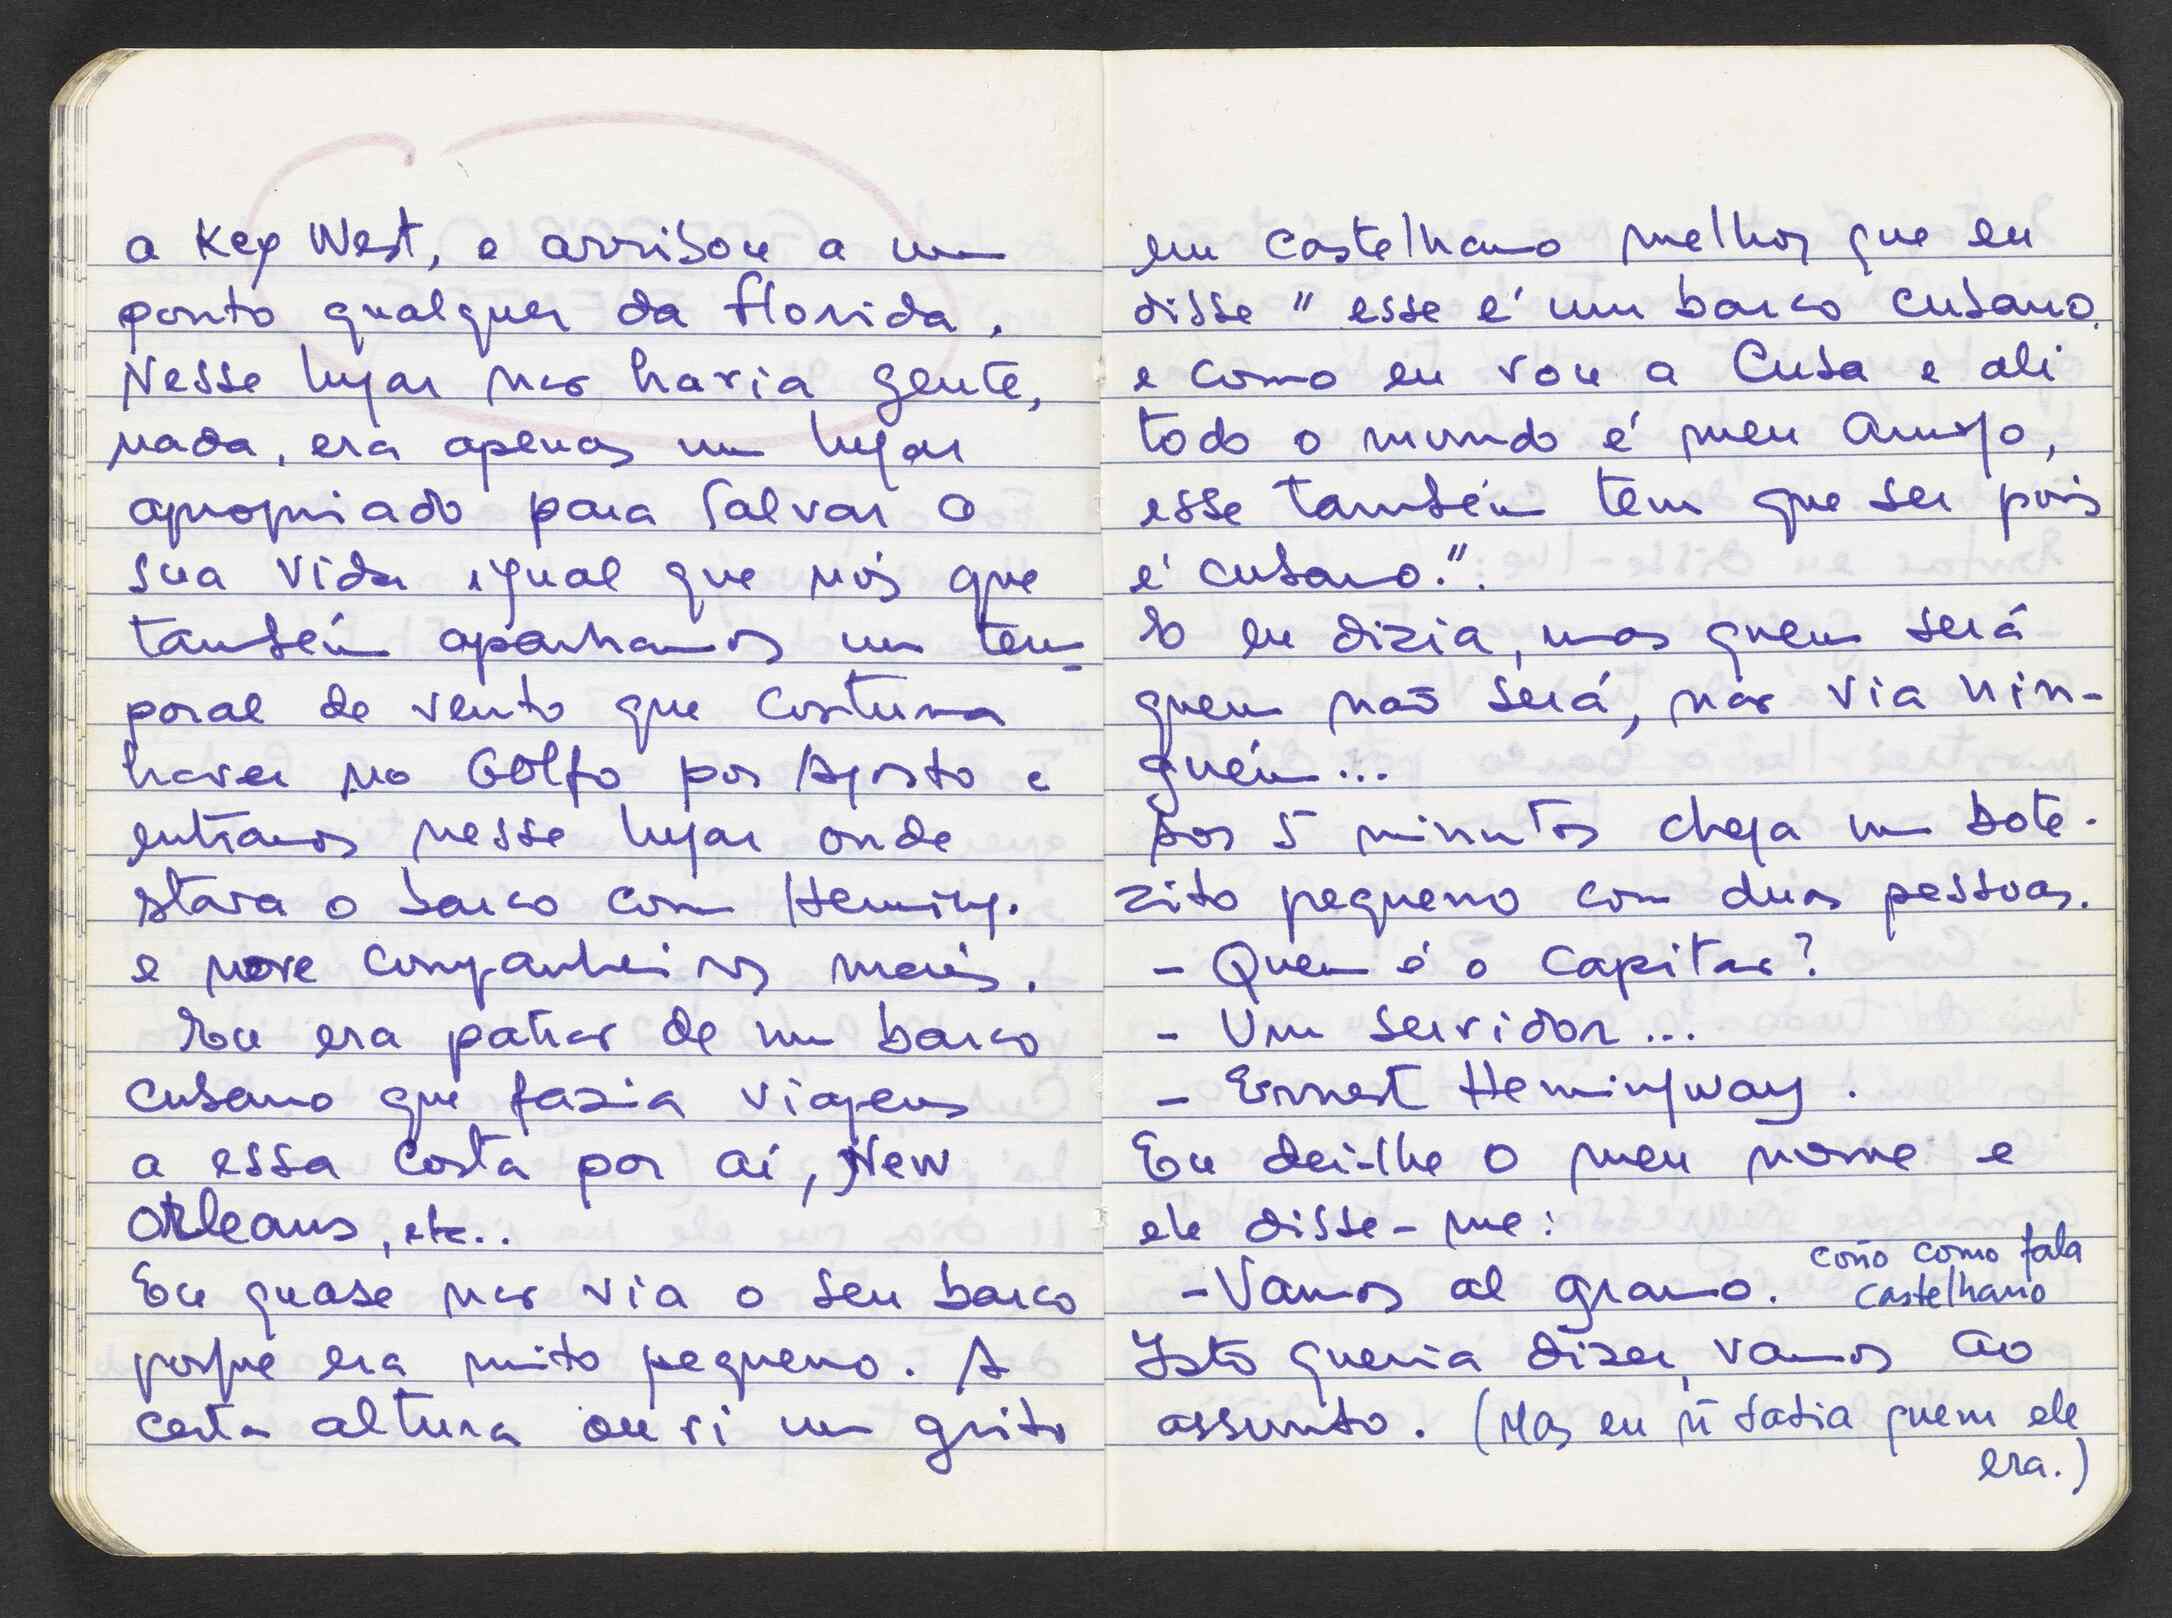 a Key West, e arribou a um
ponto qualquer da Florida.
Nesse lugar não havia gente,
nada, era apenas um lugar
apropriado para salvar a
sua vida igual que nós que
também apanhamos um tem-
poral de vento que costuma
haver no Golfo por Agosto e
entramos nesse lugar onde
stava o barco com Heming.
e nove companheiros mais.
Eu era patrão de um barco
cubano que fazia viagens
a essa costa por aí, New
Orleans, etc..
Eu quase não via o seu barco
porque era muito pequeno. A
certa altura ouvi um grito
em castelhano melhor que eu
disse " esse é um barco cubano.
e como eu vou a Cuba e ali
todo o mundo é meu amigo,
esse também tem que ser pois
é cubano.".
E eu dizia, mas quem será
quem não será, não via nin-
guém...
Aos 5 minutos chega um bote-
zito pequeno com duas pessoas.
- Quem é o Capitão?
- Um servidor...
- Ernest Hemingway.
Eu dei-lhe o meu nome e
ele disse-me:
coño como fala
castelhano
- Vamos al grano.
Isto queria dizer, vamos ao
assunto. (Mas eu ñ sabia quem ele
era.)